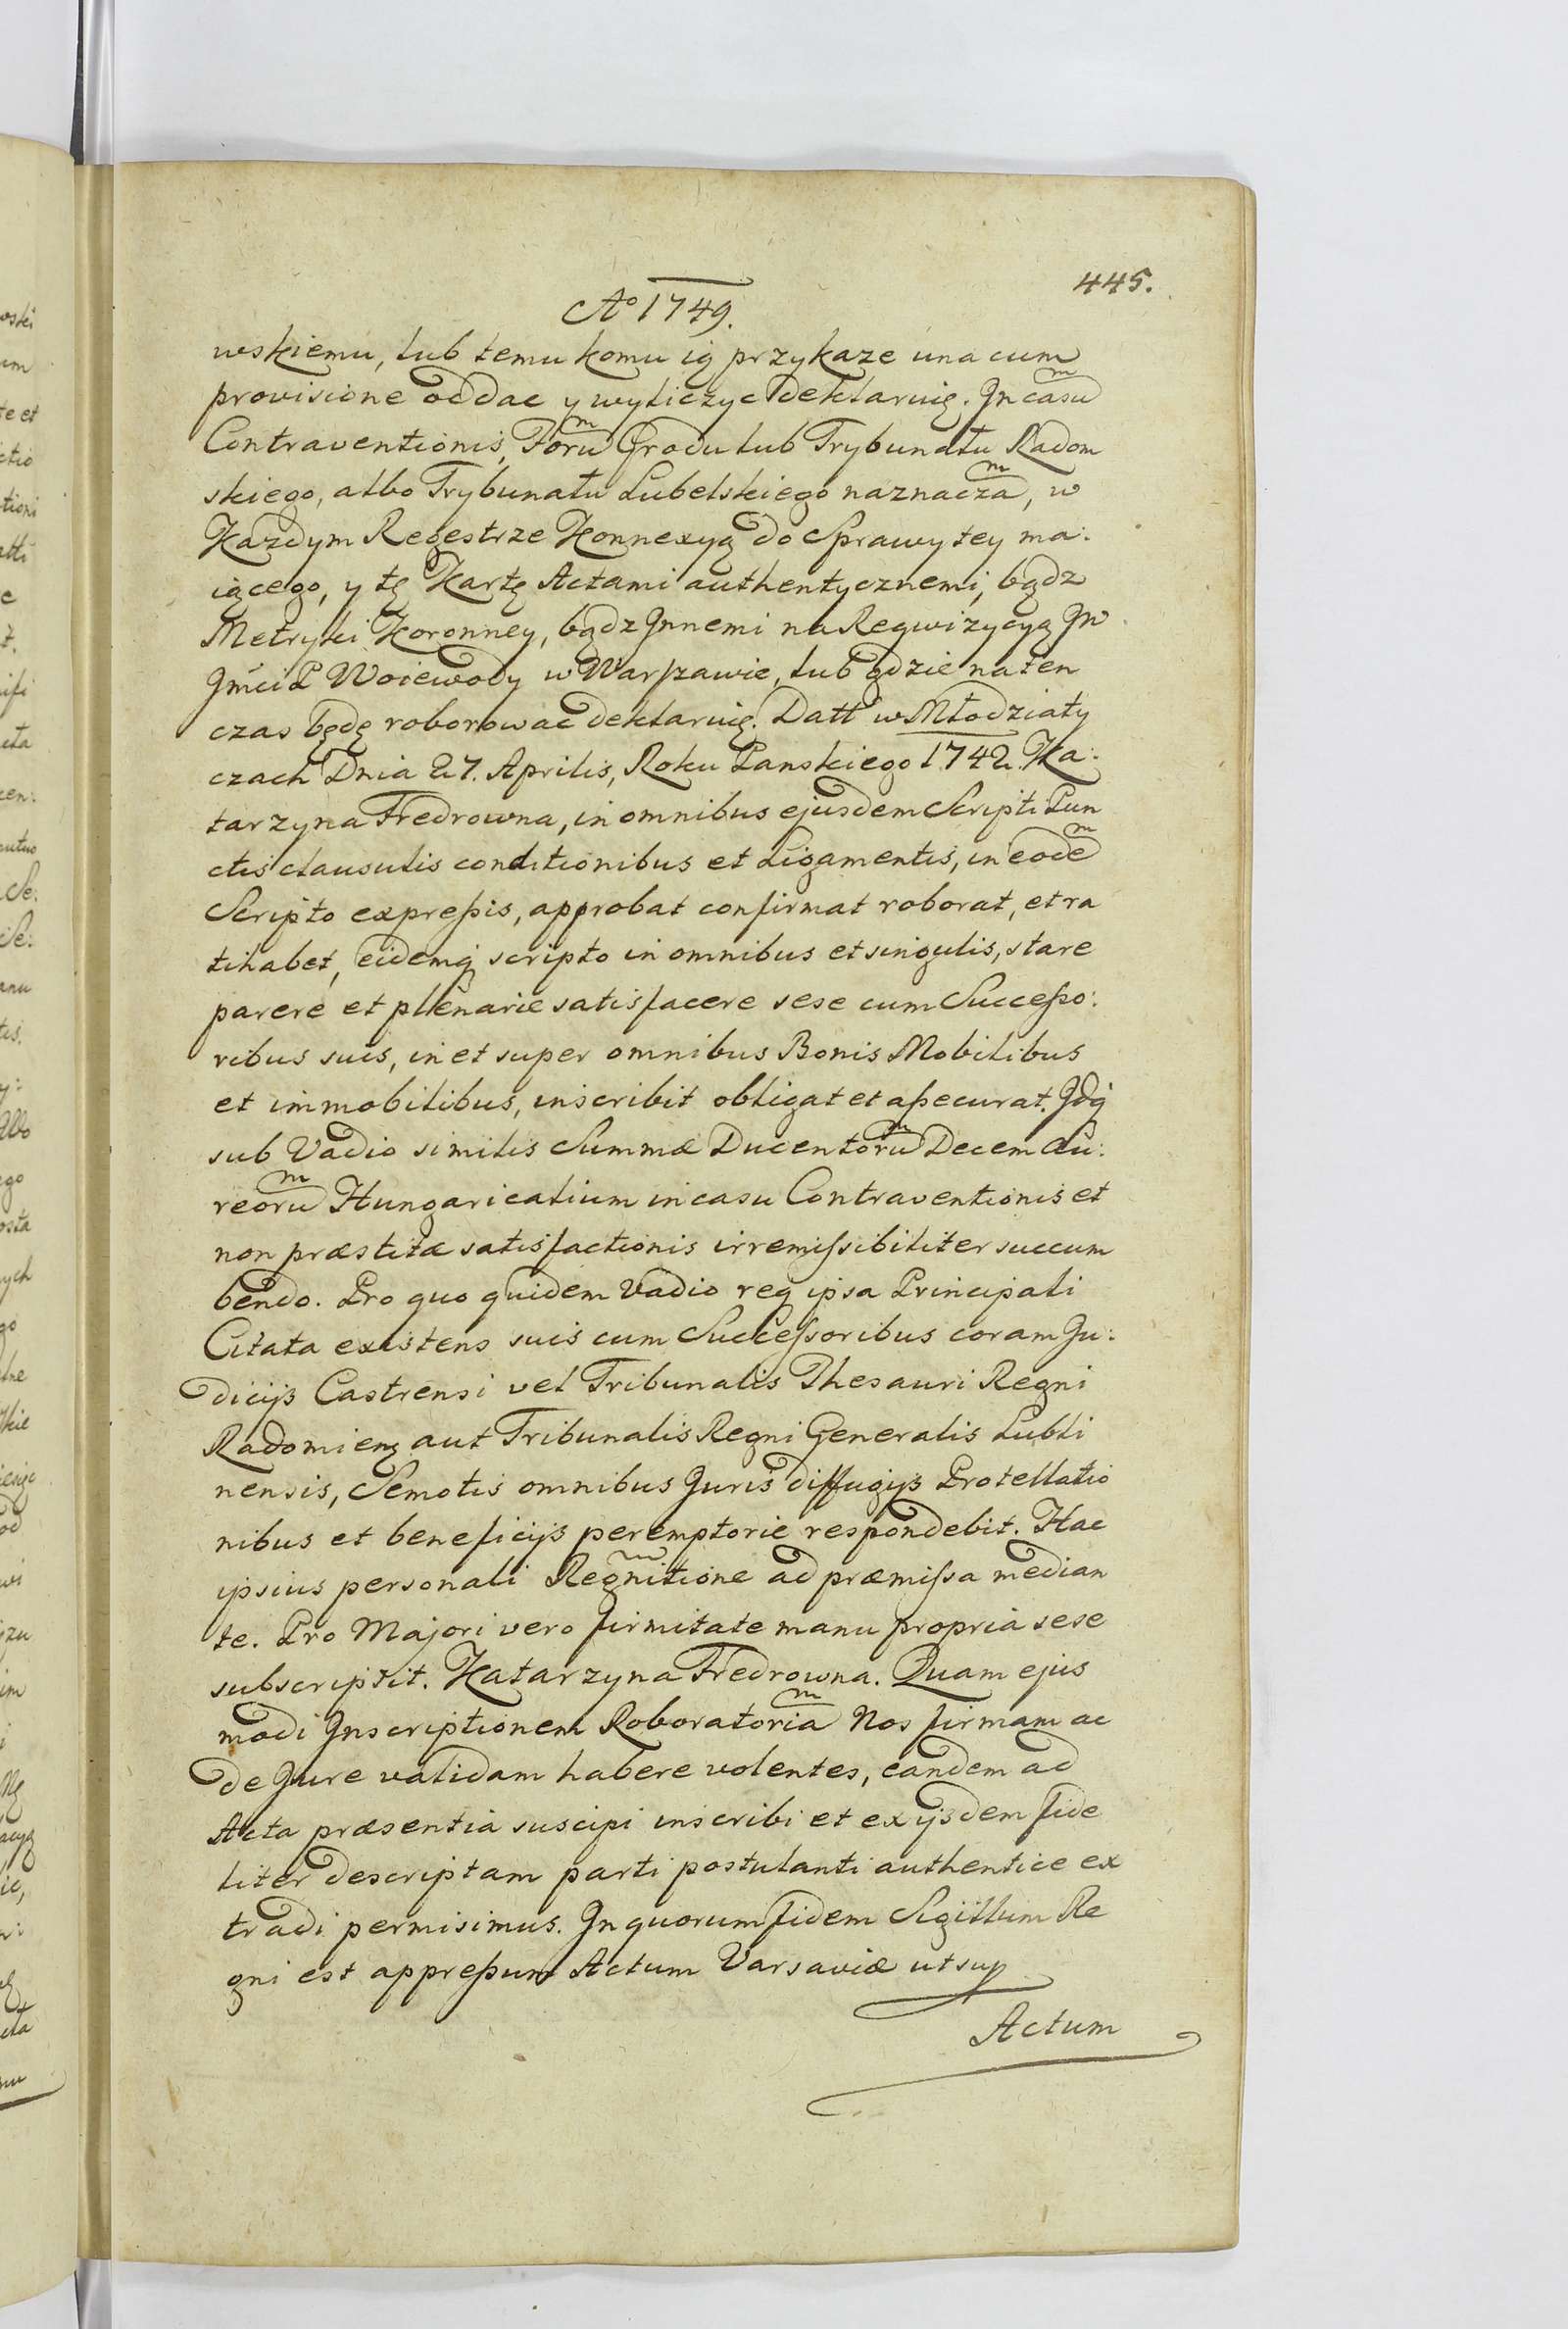 445.
Aº 1749.
wskiemu, lub temu komu ią przykaze una cum
provisione oddac y wyliczyc deklaruię. Jn casu͠
Contraventionis, Foru͠ Grodu lub Trybunału Radom
skiego, albo Trybunału Lubelskiego naznacza͠, w
Kazdym Regestrze Konnexyą do Sprawy tey ma:
iącego, y tę Kartę Actami authentycznemi, bądz
Metryki Koronney, bądz Jnnemi na Reqwizycyą JW
Jmći P Woiewody w Warszawie, lub gdzie na ten
czas będę roborowac deklaruię. Datt w Młodziaty
czach Dnia 27. Aprilis, Roku Panskiego 1742. Ka:
tarzyna Fredrowna, in omnibus ejusdem Scripti Pun
ctis clausulis conditionibus et Ligamentis, in eode͠
Scripto expressis, approbat confirmat roborat, et ra
tihabet, eidemq scripto in omnibus et singulis, stare
parere et plenarie satisfacere sese cum Successo:
ribus suis, in et super omnibus Bonis Mobilibus
et immobilibus, inscribit obligat et assecurat. Jdq
sub Vadio similis Summæ Ducentoru͠ Decem Au:
reoru͠ Hungaricalium in casu Contraventionis et
non præstitæ satisfactionis irremissibiliter succum
bendo. Pro quo quidem Vadio req ipsa Principali
Citata existens suis cum Successoribus coram Ju:
dicijs Castrensi vel Tribunalis Thesauri Regni
Radomien aut Tribunalis Regni Generalis Lubli
nensis, Semotis omnibus Juris diffugijs Protellatio
nibus et beneficijs peremptorie respondebit. Hac
ipsius personali Regn͠itione ad præmissa median
te. Pro Majori vero firmitate manu propria sese
subscripsit. Katarzyna Fredrowna. Quam ejus
modi Jnscriptionem Roboratoria͠ Nos firmam ac
de Jure validam habere volentes, eandem ad
Acta præsentia suscipi inscribi et ex ijsdem fide
liter descriptam parti postulanti authentice ex
tradi permisimus. Jn quorum fidem Sigillum Re
gni est appressum Actum Varsaviæ ut sup
Actum